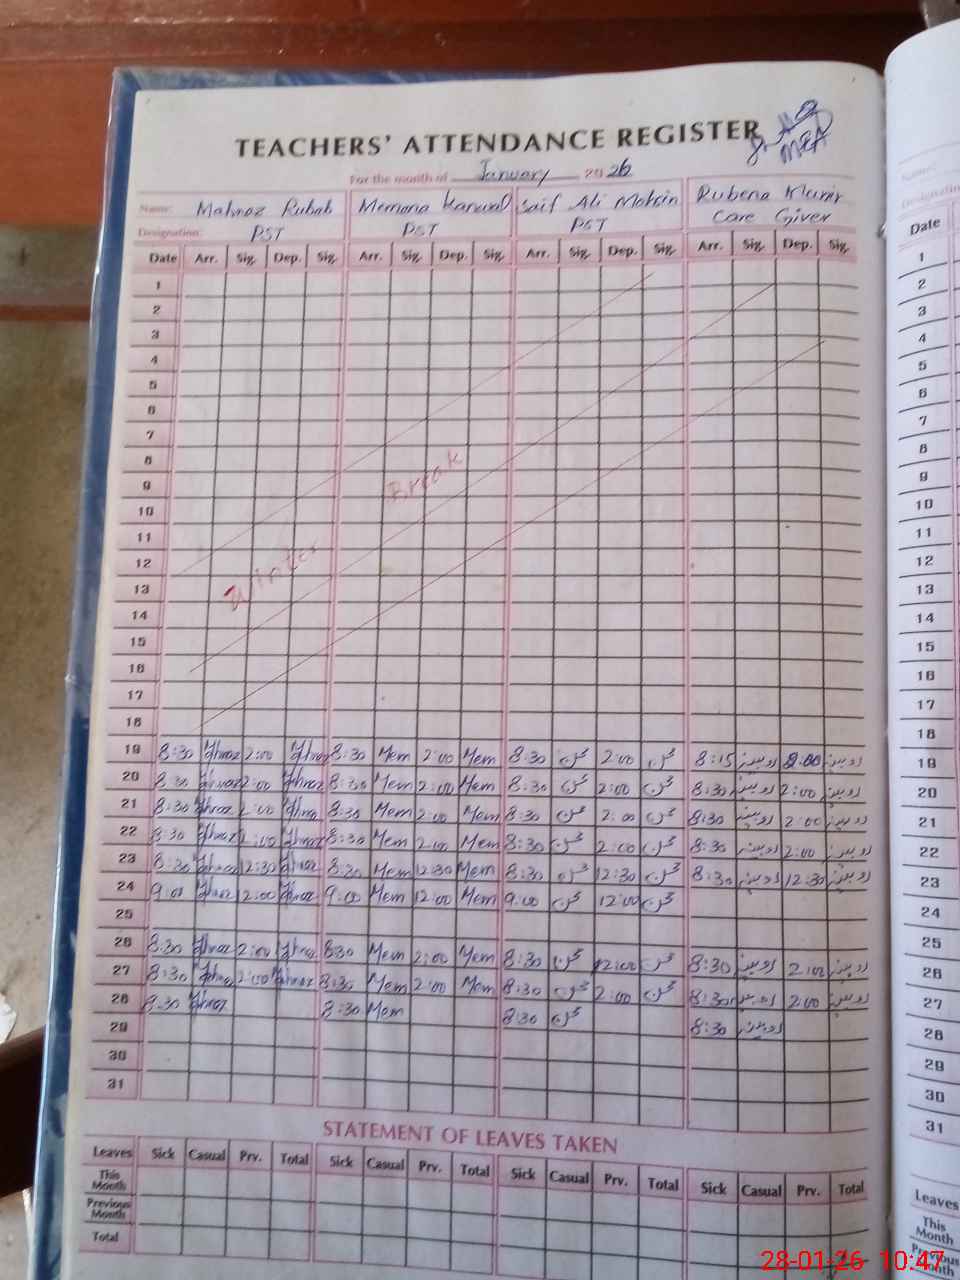 TEACHERS' ATTENDANCE REGISTER
MEA
For the month of January 2026
Name: Mahnaz Rubab Memona Kanwal Saif Ali Mohsin Rubena Munir
Designation: PST PST PST Care Giver
Date Arr. Sig. Dep. Sig. Arr. Sig. Dep. Sig. Arr. Sig. Dep. Sig. Arr. Sig. Dep. Sig.
1
2
3
4
5
6
7
8
9
10
11
12
13
14
15
16
17
18
Winter Break
19 8:30 2:00 8:30 Mem 2:00 Mem 8:30 2:00 8:15 روبینہ 2:00 روبینہ
20 8:30 2:00 8:30 Mem 2:00 Mem 8:30 2:00 8:30 روبینہ 2:00 روبینہ
21 8:30 2:00 8:30 Mem 2:00 Mem 8:30 2:00 8:30 روبینہ 2:00 روبینہ
22 8:30 2:00 8:30 Mem 2:00 Mem 8:30 2:00 8:30 روبینہ 2:00 روبینہ
23 8:30 12:30 8:30 Mem 12:30 Mem 8:30 12:30 8:30 روبینہ 12:30 روبینہ
24 9:00 12:00 9:00 Mem 12:00 Mem 9:00 12:00
25
26 8:30 2:00 8:30 Mem 2:00 Mem 8:30 2:00 8:30 روبینہ 2:00 روبینہ
27 8:30 2:00 8:30 Mem 2:00 Mem 8:30 2:00 8:30 روبینہ 2:00 روبینہ
28 8:30 8:30 Mem 8:30 8:30 روبینہ
29
30
31
STATEMENT OF LEAVES TAKEN
Leaves Sick Casual Prv. Total Sick Casual Prv. Total Sick Casual Prv. Total Sick Casual Prv. Total
This Month
Previous Month
Total
Date
1
2
3
4
5
6
7
8
9
10
11
12
13
14
15
16
17
18
19
20
21
22
23
24
25
26
27
28
29
30
31
Leaves
This Month
Previous Month
28-01-26 10:47